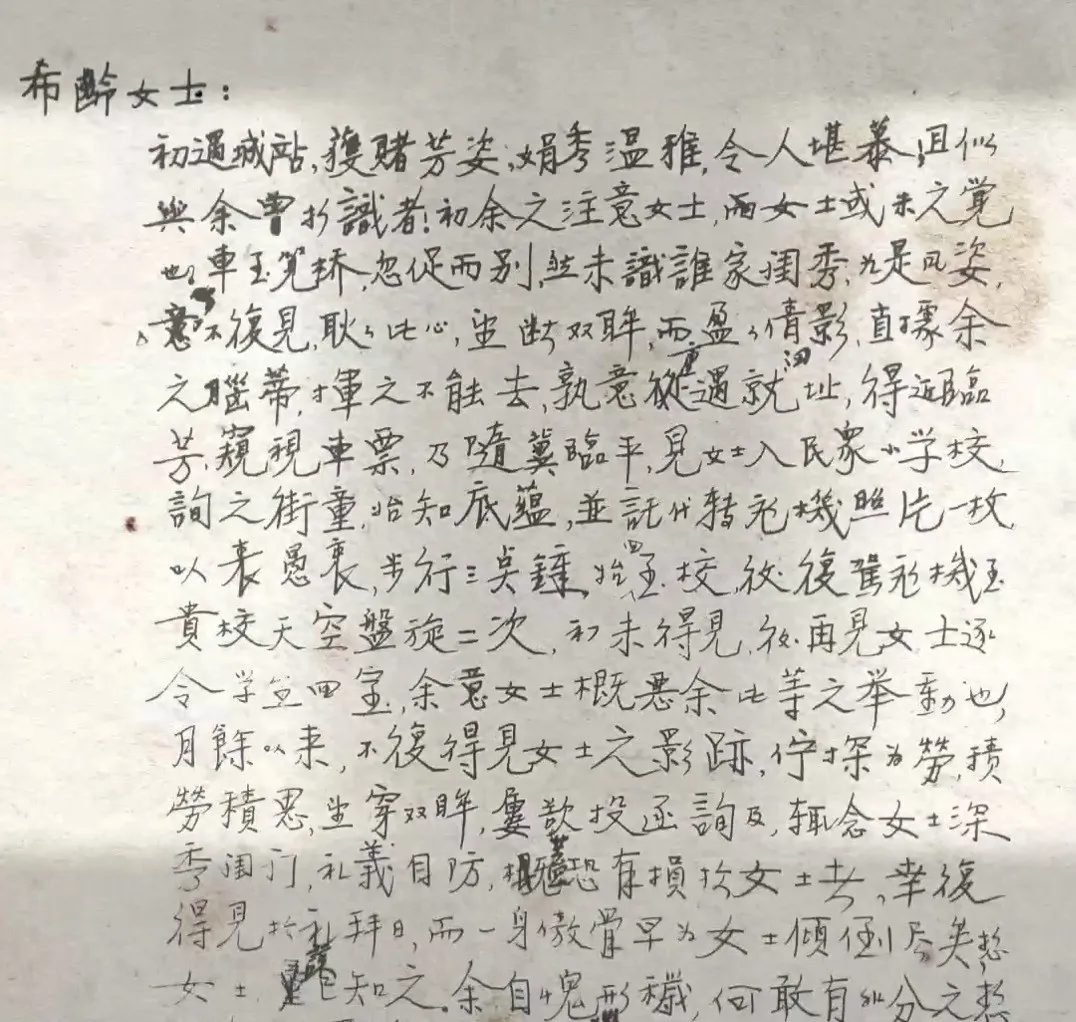 希齡女士：
初遇城站，獲睹芳姿，娟秀温雅，令人堪慕，且似
與余曾於識者！初余之注意女士，而女士或未之覚
也，車至筧桥，忽促而别，然未識誰家闺秀，九是凤姿，
意不復見，耿々此心，坐断双眸，而盈々倩影，直據余
之腦蒂，揮之不能去，孰意從重遇就沏址，得近臨
芳，窺視車票，乃隨冀臨平，見女士入民衆小学校，
詢之街童，始知底蘊，並託代轉飛機照片一枚，
以表愚衷，步行三点鐘，始回至校，後復駕飛機至
貴校天空盤旋二次，初未得見，後再見女士逐
令学生回室，余意女士概悪余此等之举動也，
月餘以来，不復得見女士之影跡，佇探为勞，積
勞積思，坐穿双眸，屢欲投函詢及，輒念女士深
秀闺门，礼義自防，恐有損於女士去，幸復
得見於礼拜日，而一身傲骨早为女士傾倒尽矣，想
女士已知之。余自愧形穢，何敢有非分之想